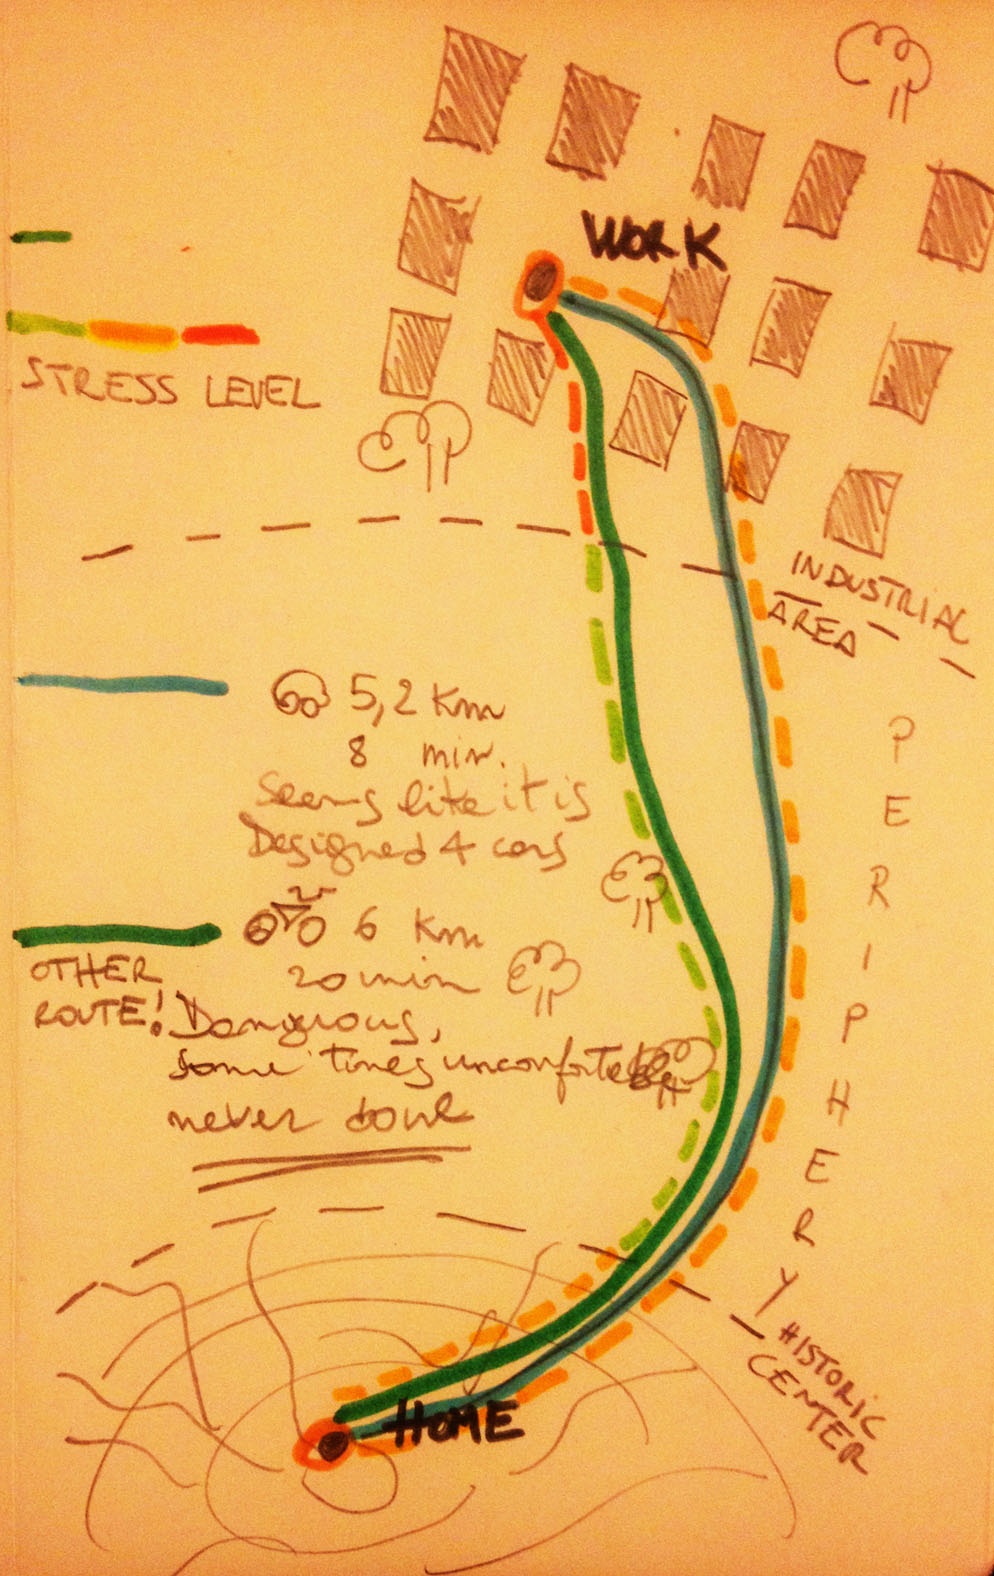 WORK
STRESS LEVEL
INDUSTRIAL
AREA
5,2 Km
8 min.
Seems like it is
Designed 4 cars
PERIPHERY
6 Km
20 min
OTHER
ROUTE!
Dangerous,
some times unconfortable
never done
HISTORIC
CENTER
HOME